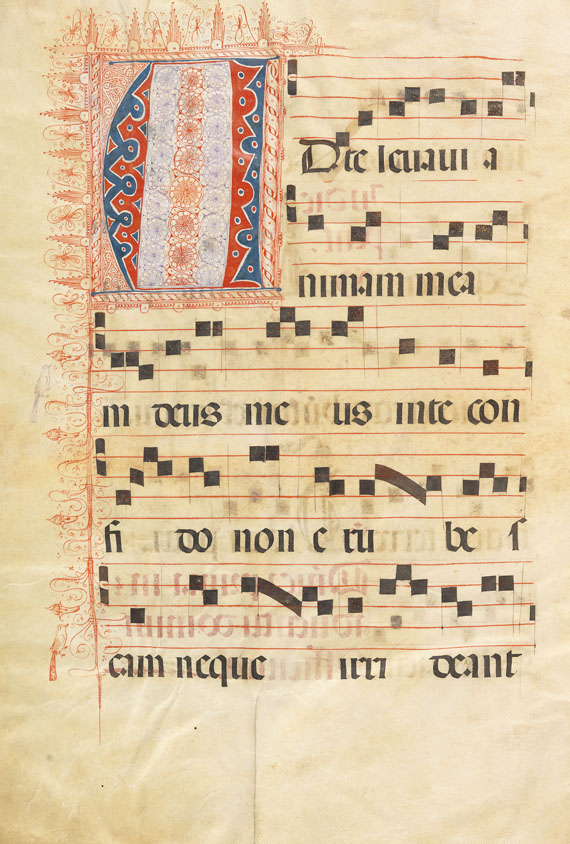 ADte levavi a
nimam mea
m deus me us inte con
fi do non e ru be s
cam neque irri deant